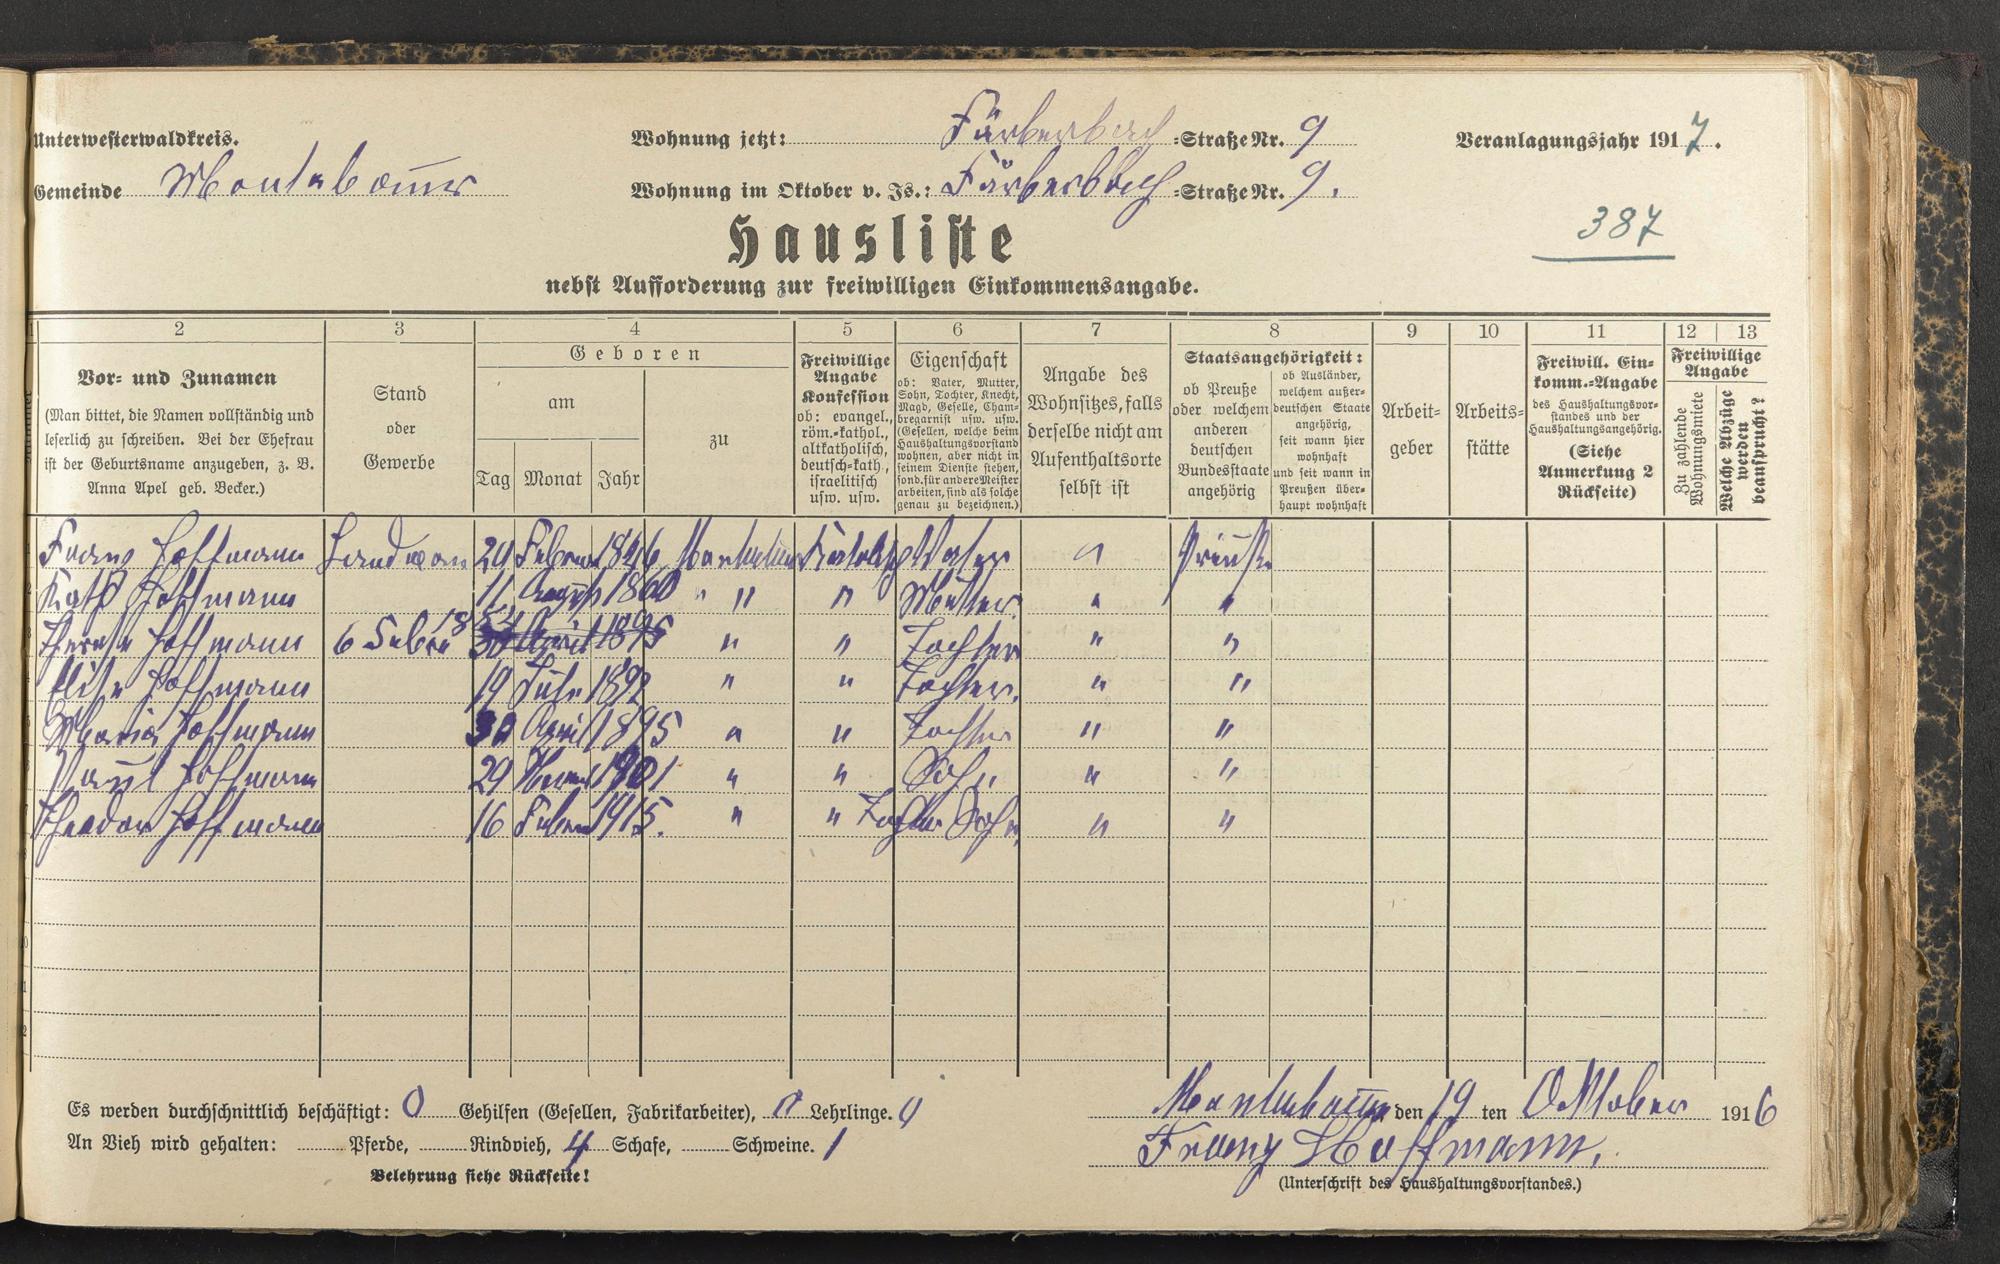 Unterwesterwaldkreis.
Wohnung jetzt: Färberbach =Straße Nr. 9
Veranlagungsjahr 1917.
Gemeinde Montabaur
Wohnung im Oktober v. Js.: Färberbach =Straße Nr. 9.
387
Hausliste
nebst Aufforderung zur freiwilligen Einkommensangabe.
1 2 3 4 5 6 7 8 9 10 11 12 13
Nummer
Vor= und Zunamen
(Man bittet, die Namen vollständig und
leserlich zu schreiben. Bei der Ehefrau
ist der Geburtsname anzugeben, z. B.
Anna Apel geb. Becker.)
Stand
oder
Gewerbe
Geboren
am
Tag Monat Jahr
zu
Freiwillige
Angabe
Konfession
ob: evangel.,
röm.=kathol.,
altkatholisch,
deutsch=kath.,
israelitisch
usw. usw.
Eigenschaft
ob: Vater, Mutter,
Sohn, Tochter, Knecht,
Magd, Geselle, Cham=
bregarnist usw. usw.
(Gesellen, welche beim
Haushaltungsvorstand
wohnen, aber nicht in
seinem Dienste stehen,
sond. für andere Meister
arbeiten, sind als solche
genau zu bezeichnen.)
Angabe des
Wohnsitzes, falls
derselbe nicht am
Aufenthaltsorte
selbst ist
Staatsangehörigkeit:
ob Preuße
oder welchem
anderen
deutschen
Bundesstaate
angehörig
ob Ausländer,
welchem außer=
deutschen Staate
angehörig,
seit wann hier
wohnhaft
und seit wann in
Preußen über=
haupt wohnhaft
Arbeit=
geber
Arbeits=
stätte
Freiwill. Ein=
komm.=Angabe
des Haushaltungsvor=
standes und der
Haushaltungsangehörig.
(Siehe
Anmerkung 2
Rückseite)
Freiwillige
Angabe
Zu zahlende
Wohnungsmiete
Welche Abzüge
werden
beansprucht?
Franz Hoffmann Landman 24 Februar 1846 Montabaur Katolisch Vater " Preuße
Kath Hoffmann 11 August 1860 " " " Mutter " "
Therese Hoffmann 6 Febru 18 30 April 1895 " " Tochter " "
Elise Hoffmann 19 Juli 1892 " " Tochter. " "
Maria Hoffmann 30 April 1895 " " Tochter " "
Paul Hoffmann 29 1901 " " Sohn " "
Theodor Hoffmann 16 Februar 1915. " " Tochter Sohn " "
Es werden durchschnittlich beschäftigt: 0 Gehilfen (Gesellen, Fabrikarbeiter), 0 Lehrlinge. 0
Montabaur den 19 ten Oktober 1916
An Vieh wird gehalten: Pferde, Rindvieh, 4 Schafe, Schweine. 1
Franz Hoffmann.
Belehrung siehe Rückseite!
(Unterschrift des Haushaltungsvorstandes.)